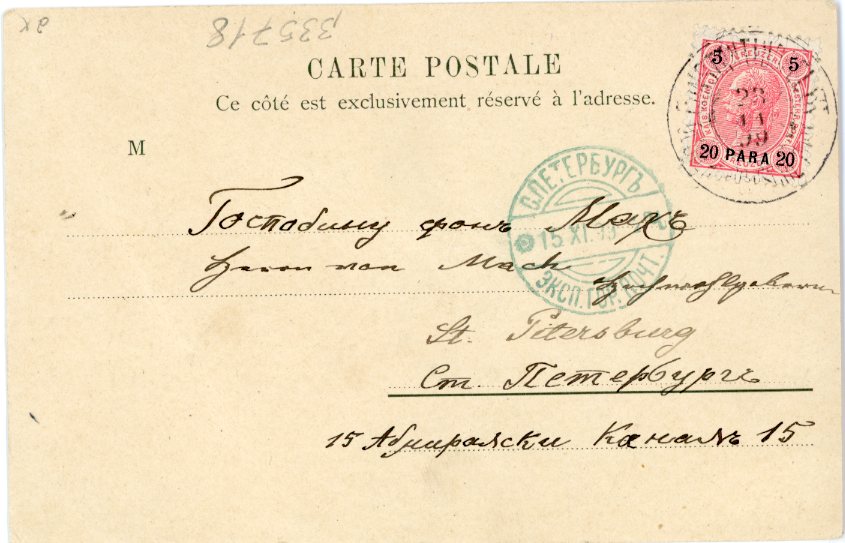 335718
CARTE POSTALE
Ce côté est exclusivement réservé à l'adresse.
M
5 5
KREUZER
23
11
99
20 PARA 20
С.ПЕТЕРБУРГЪ
15 XI
ЭКСП.ГОР.ПОЧТ.
Господину фонъ Махъ
Herrn von Mach
St. Petersburg
Ст. Петербургъ
15 Адмиралски Каналъ 15